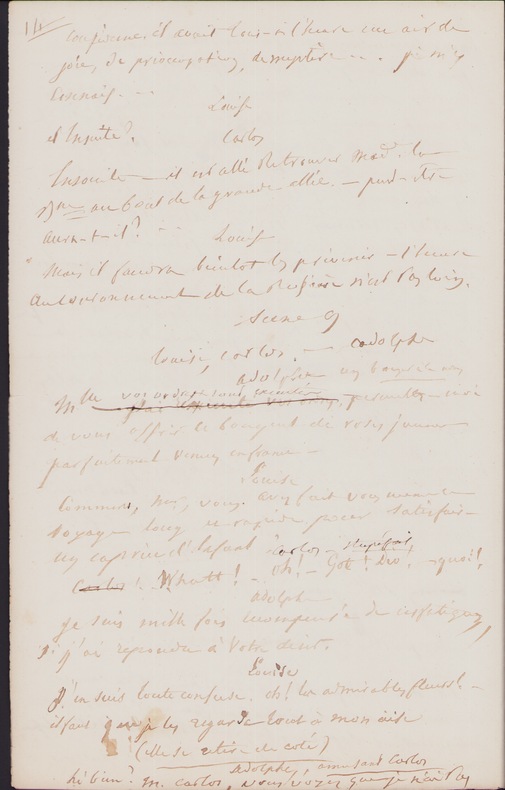 14
avait tout-à-l'heure un air de
joie, de préoccupation, de mystère . . . je m'y
connais. . .
Louise
et Ensuite?
Carlos
Ensuite — il est allé Retrouver Mad. la
au bout de la grande allée. — peut-être
aura-t-il? . .
Louise
Mais il faudra bientôt les prévenir — l'heure
du couronnement de la Rosière n'est pas loin.
Scene 9
Louise, Carlos. — adolphe
adolphe un bouquet en
Mlle vos ordres sont exécutés, permettez-moi
de vous offrir le bouquet de roses jaunes
parfaitement venues en france —
Louise
Comment, Mr, vous avez fait vous même un
voyage long et rapide pour satisfaire
un caprice d'Enfant
Carlos stupéfait,
Carlos! Whatt! — oh! — Got! — quoi!
adolphe
Je suis mille fois récompensé de mes fatigues,
si j'ai répondu à Votre désir.
Louise
J'en suis toute confuse. oh! les admirables fleurs! —
il faut que je les regarde tout à mon aise
(elle se retire de coté)
adolphe, amusant Carlos
hé bien? M. Carlos, vous voyez que je n'ai pas